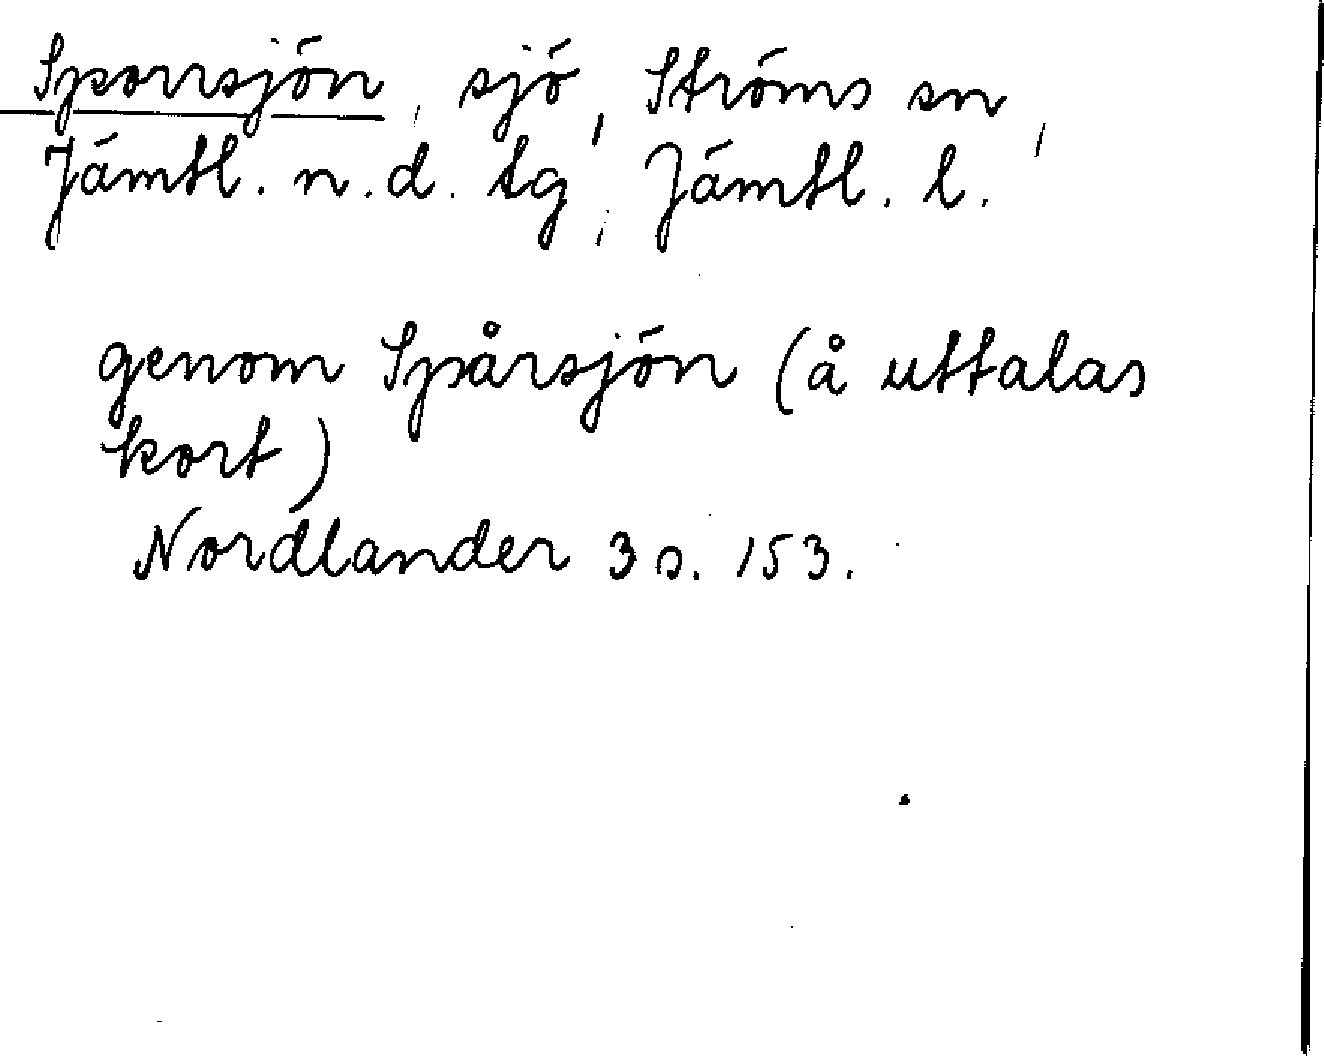 Sporrsjön, sjö, Ströms sn,
Jämtl. n. d. tg, Jämtl. l.
genom Spårsjön (å uttalas
kort)
Nordlander 3 s. 153.